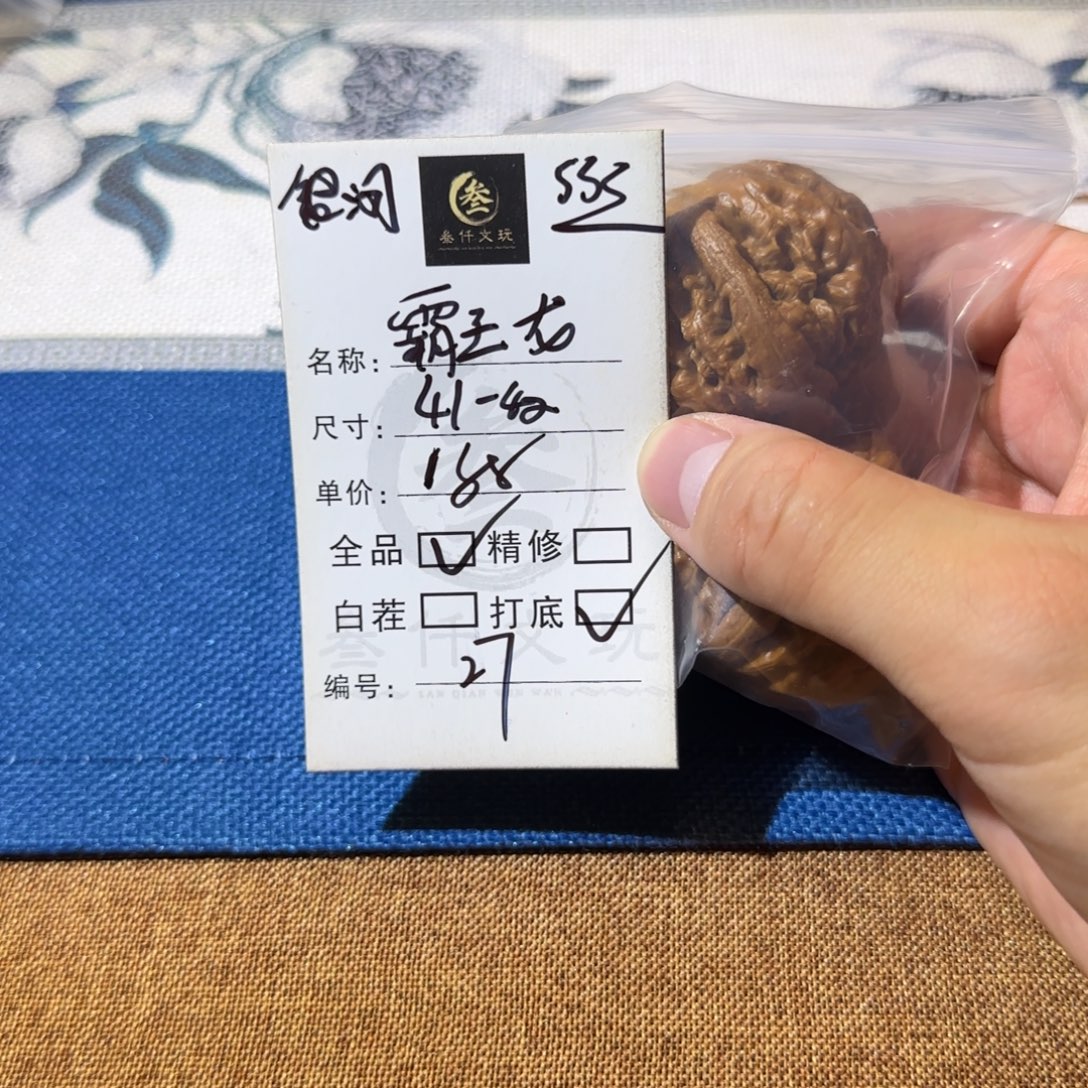 555
叁
叁仟文玩
名称: 霸王龙
尺寸: 41-42
单价:
全品 ✓ 精修
白茬 打底 ✓
叁仟文玩
SAN QIAN WEN WAN
编号: 27